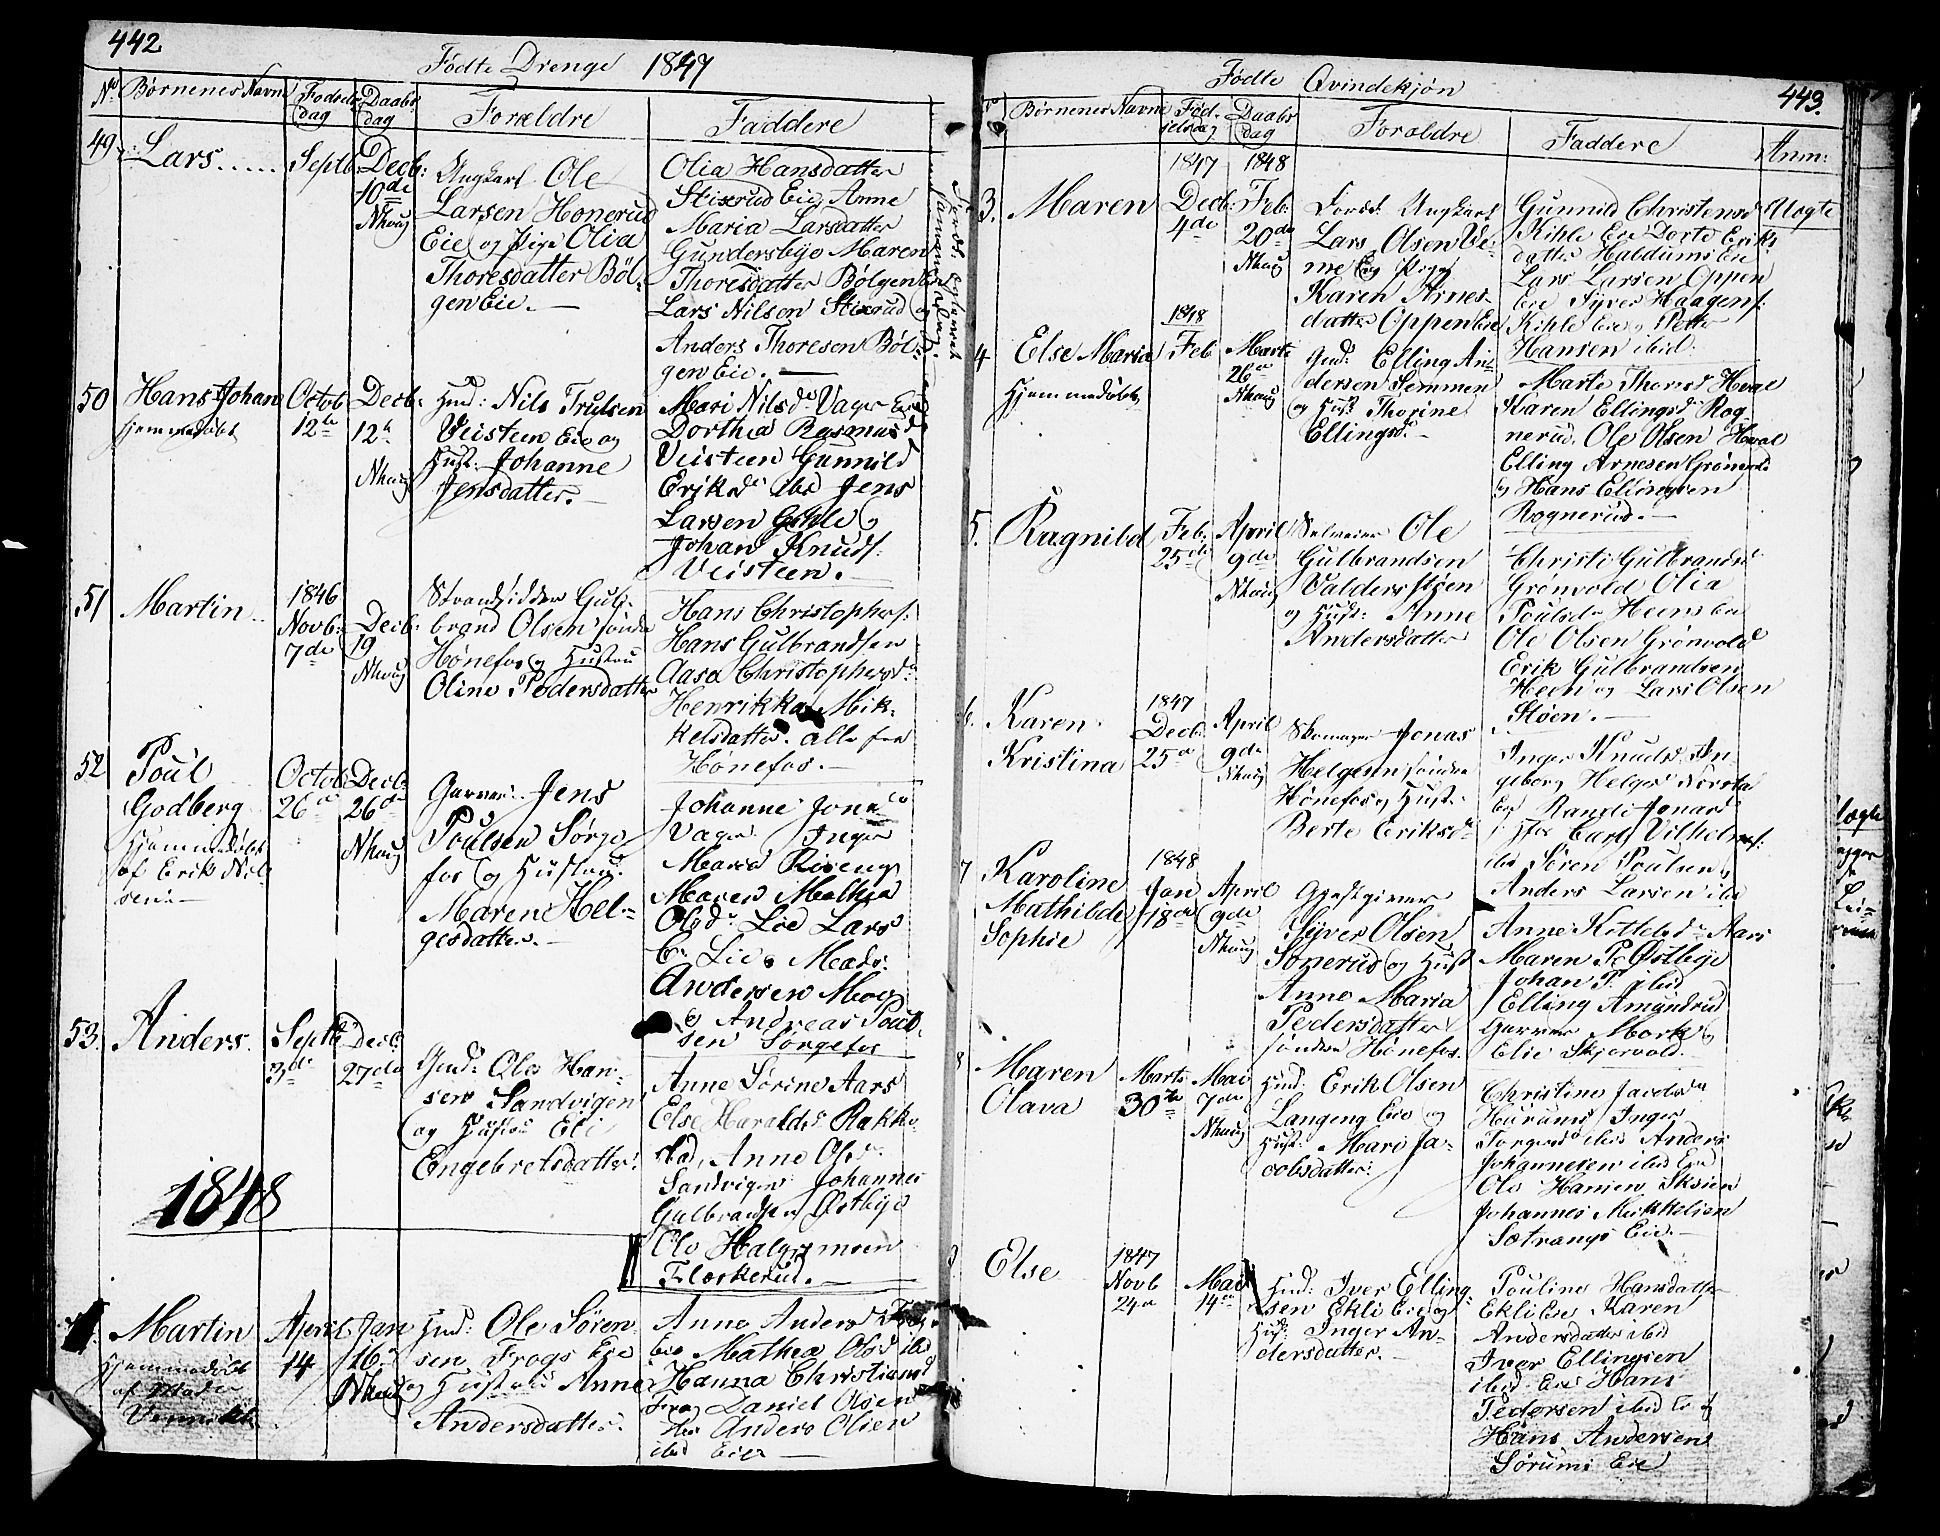 442
Fødte Drenge 1847
No Børnenes Navne Fødsels dag Daabs dag Forældre Faddere
49. Lars..... Septb: Decb: 10de Nhaug
Ungkarl Ole
Larsen Honerud
Eie og Pige Olia
Thoresdatter Böl-
gen Eie.
Olia Hansdatter
Stixrud Eie, Anne
Maria Larsdatter
Gundersbye Maren
Thoresdatter Bølgen
Lars Nilson Stixrud
Anders Thoresen Böl-
gen Eie.
50 Hans Johan Octob 12te Decb: 12te Nhaug
hjemmedøbt
Hmd: Nils Trulsen
Veisteen Eie og
Hust: Johanne
Jensdatter.
Mari Nilsdr Vager Eie
Dorthea Rasmusdr
Veisteen Gunnild
Eriksdr ibd Jens
Larsen Gihle og
Johan Knuds:
Veisteen.
51 Martin 1846 Novb: 7de Decb: 19 Nhaug
Strandsidder Gul-
brand Olsen søndre
Hønefos og Hustru
Oline Pedersdatter
Hans Christophers:
Hans Gulbrandsen
Aasa Christophersdr
Henrikka Mik-
kelsdatter. alle fra
Honefos.
52 Poul
Godberg Octob 26de Decb: 26de Nhaug
Hjemmedøbt
af Erik Nil-
sen
Garver Jens
Poulsen Sørge-
fos og Hustru
Maren Hel-
gesdatter.
Johanne Jonsdr
Vager Inger
Maria Riseng
Maren Mathea
Olsdr Lie Lars
Lie Mads
Andersen Moe
og Andreas Poul-
sen Sørgefos
53. Anders Septb 3de Decb: 27de
Gmd: Ole Han-
sen Sandvigen
og Hustru Eli
Engebretsdatter:
Anne Sørine Aars
Else Haraldsdr Rakke-
stad, Anne Olsdr
Sandvigen Johannes
Gulbrandsen Østbye
Ole Halgrimsen
Fleskerud.
1848
Martin April 14 Jan 16de Nhaug
Hjemmedøbt
af Mads
Hmd: Ole Sören
sen Frogs Eie
og Hustru Anne
Andersdatter.
Anne Andersdr Frog
Eie Mathea Olsd ibd
Hanna Christiansd
Frog Daniel Olsen
ibd Anders Olsen
ibid Eier
443.
Fødte Qvindekjøn
No Børnenes Navne Fød- selsdag Daabs dag Forældre Faddere Anm:
3. Maren 1847 Decb: 4de 1848 Feb: 20de Nhaug
Ungkarl
Lars Olsen Ve-
me Eie Pige
Karen Arnes-
datter Oppen Eie
Gunnild Christensd
Kihle Eie Dorte Eriks
datter Haldums Eie
Lars Larsen Oppen
Eie Syver Haagens:
Kihle Eie og Petter
Hansen ibid.
Uægte
4 Else Maria 1848 Feb Marts 26de Nhaug
Hjemmedøbt
Gmd: Elling An-
dersen Semmen
og Hust Thorine
Ellingsdr
Marte Thoresdr Hval
Karen Ellingsdr Rog-
nerud. Ole Olsen Hval
Elling Arnesen Grönerud
og Hans Ellingsen
Rognerud.
5. Ragnild Feb: 25de April 9de Nhaug
Selveier Ole
Gulbrandsen
Valdersstöen
og Hust: Anne
Andersdatter
Christi Gulbrandsd
Grönvold Olia
Poulsdr Heens Eie
Ole Olsen Grönvold
Erik Gulbrandsen
Heen og Lars Olsen
Støen.
6. Karen
Kristina 1847 Decb: 25de April 9de Nhaug
Skomager Jonas
Helgesen søndre
Hönefos og Hust:
Berte Eriksdr
Inger Knudsdr In
geborg Helgesdr
Eie Randi Jonasd
Carl Vilhelms:
ibd Sören Poulsen
Anders Larsen ibd
7 Karoline
Mathilde
Sophie 1848 Jan 18de April 9de Nhaug
Gjestgiver
Syver Olsen
Sonerud og Hust
Anne Maria
Pedersdatter
søndre Hönefos.
Anne Kittelsdr Aars
Maren P. Østbye
Johan P. ibid
Elling Amundrud
Garver Mork og
Elie Skjervold.
8 Maren
Olava Marts 30te Mai 7de Nhaug
Hmd: Erik Olsen
Langeng Eie og
Hust: Mari Ja-
cobsdatter:
Christine Jacobsdr
Hurums Inger
Torgersd ibid Anders
Johannesen ibid Eie
Ole Hansen Skoien
Johannes Mikkelsen
Sætrangs Eie.
9 Else 1847 Novb 24de Mai 14de
Hmd: Iver Elling-
sen Ekli Eie og
Hust: Inger An-
dersdatter.
Pouline Hansdatter
Ekli Eie Karen
Andersdatter ibid
Iver Ellingsen
ibid Eie Hans
Pedersen ibid Eie og
Hans Andersen
Sörums Eie